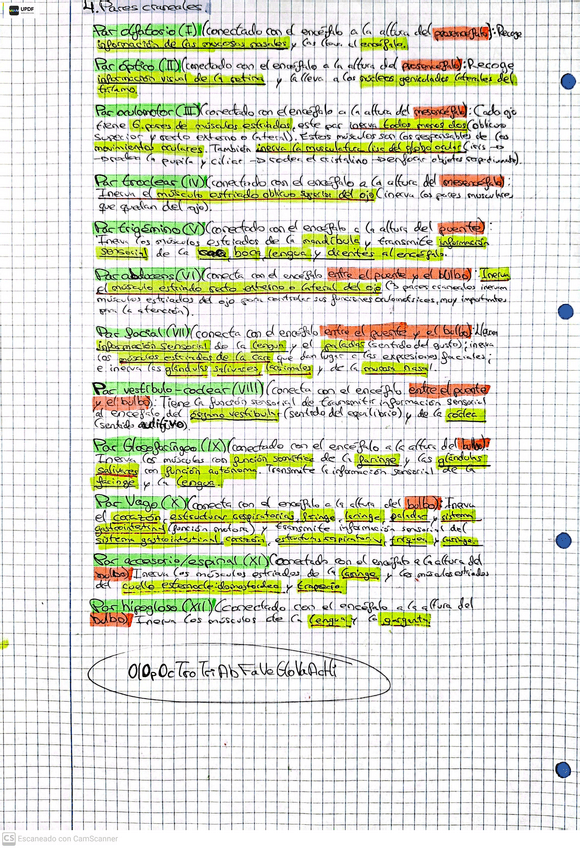 UPDF
4. Pares craneales.
Par olfatorio (I) (conectado con el encéfalo a la altura del prosencéfalo): Recoge
información de las mucosas nasales y las lleva al encéfalo.
Par óptico (II) (conectado con el encéfalo a la altura del prosencéfalo): Recoge
información visual de la retina y la lleva a los núcleos geniculados laterales del
tálamo.
Par oculomotor (III) (conectado con el encéfalo a la altura del mesencéfalo): Cada ojo
tiene 6 pares de músculos estriados, este par inerva todos menos dos (oblicuo
superior y recto externo o lateral). Estos músculos son los responsables de los
movimientos oculares. También inerva la musculatura lisa del globo ocular (iris →
→ la pupila y ciliar → el cristalino → enfocar objetos).
Par troclear (IV) (conectado con el encéfalo a la altura del mesencéfalo):
Inerva el músculo estriado oblicuo superior del ojo (inerva los pares musculares
que quedan del ojo).
Par trigémino (V) (conectado con el encéfalo a la altura del puente):
Inerva los músculos estriados de la mandíbula y transmite información
sensorial de la boca, lengua y dientes al encéfalo.
Par abducens (VI) (conecta con el encéfalo entre el puente y el bulbo): Inerva
el músculo estriado recto externo o lateral del ojo (3 pares craneales inervan
músculos estriados del ojo para controlar sus funciones oculomotrices, muy importantes
para la atención).
Par facial (VII) (conecta con el encéfalo entre el puente y el bulbo): Lleva
información sensorial de la lengua y el paladar (sentido del gusto); inerva
los músculos estriados de la cara que dan lugar a las expresiones faciales;
e inerva las glándulas salivares, lacrimales y de la mucosa nasal.
Par vestíbulo-coclear (VIII) (conecta con el encéfalo entre el puente
y el bulbo). Tiene la función sensorial de transmitir información sensorial
al encéfalo del órgano vestibular (sentido del equilibrio) y de la cóclea
(sentido auditivo).
Par Glosofaríngeo (IX) (conectado con el encéfalo a la altura del bulbo):
Inerva los músculos con función somática de la faringe y las glándulas
salivares con función autónoma. Transmite la información sensorial de la
faringe y la lengua.
Par Vago (X) (conecta con el encéfalo a la altura del bulbo): Inerva
el corazón, estructuras respiratorias, faringe, laringe, paladar y sistema
gastrointestinal (función motora) y transmite información sensorial del
sistema gastrointestinal, corazón, estructuras respiratorias, faringe y laringe.
Par accesorio/espinal (XI) (conectado con el encéfalo a la altura del
bulbo) Inerva los músculos estriados de la laringe y los músculos estriados
del cuello esternocleidomastoideo y trapecio.
Par hipogloso (XII) (conectado con el encéfalo a la altura del
bulbo) Inerva los músculos de la lengua y la garganta.
OlOpOcTroTriAbFaVeGloVaAcHi
CS Escaneado con CamScanner